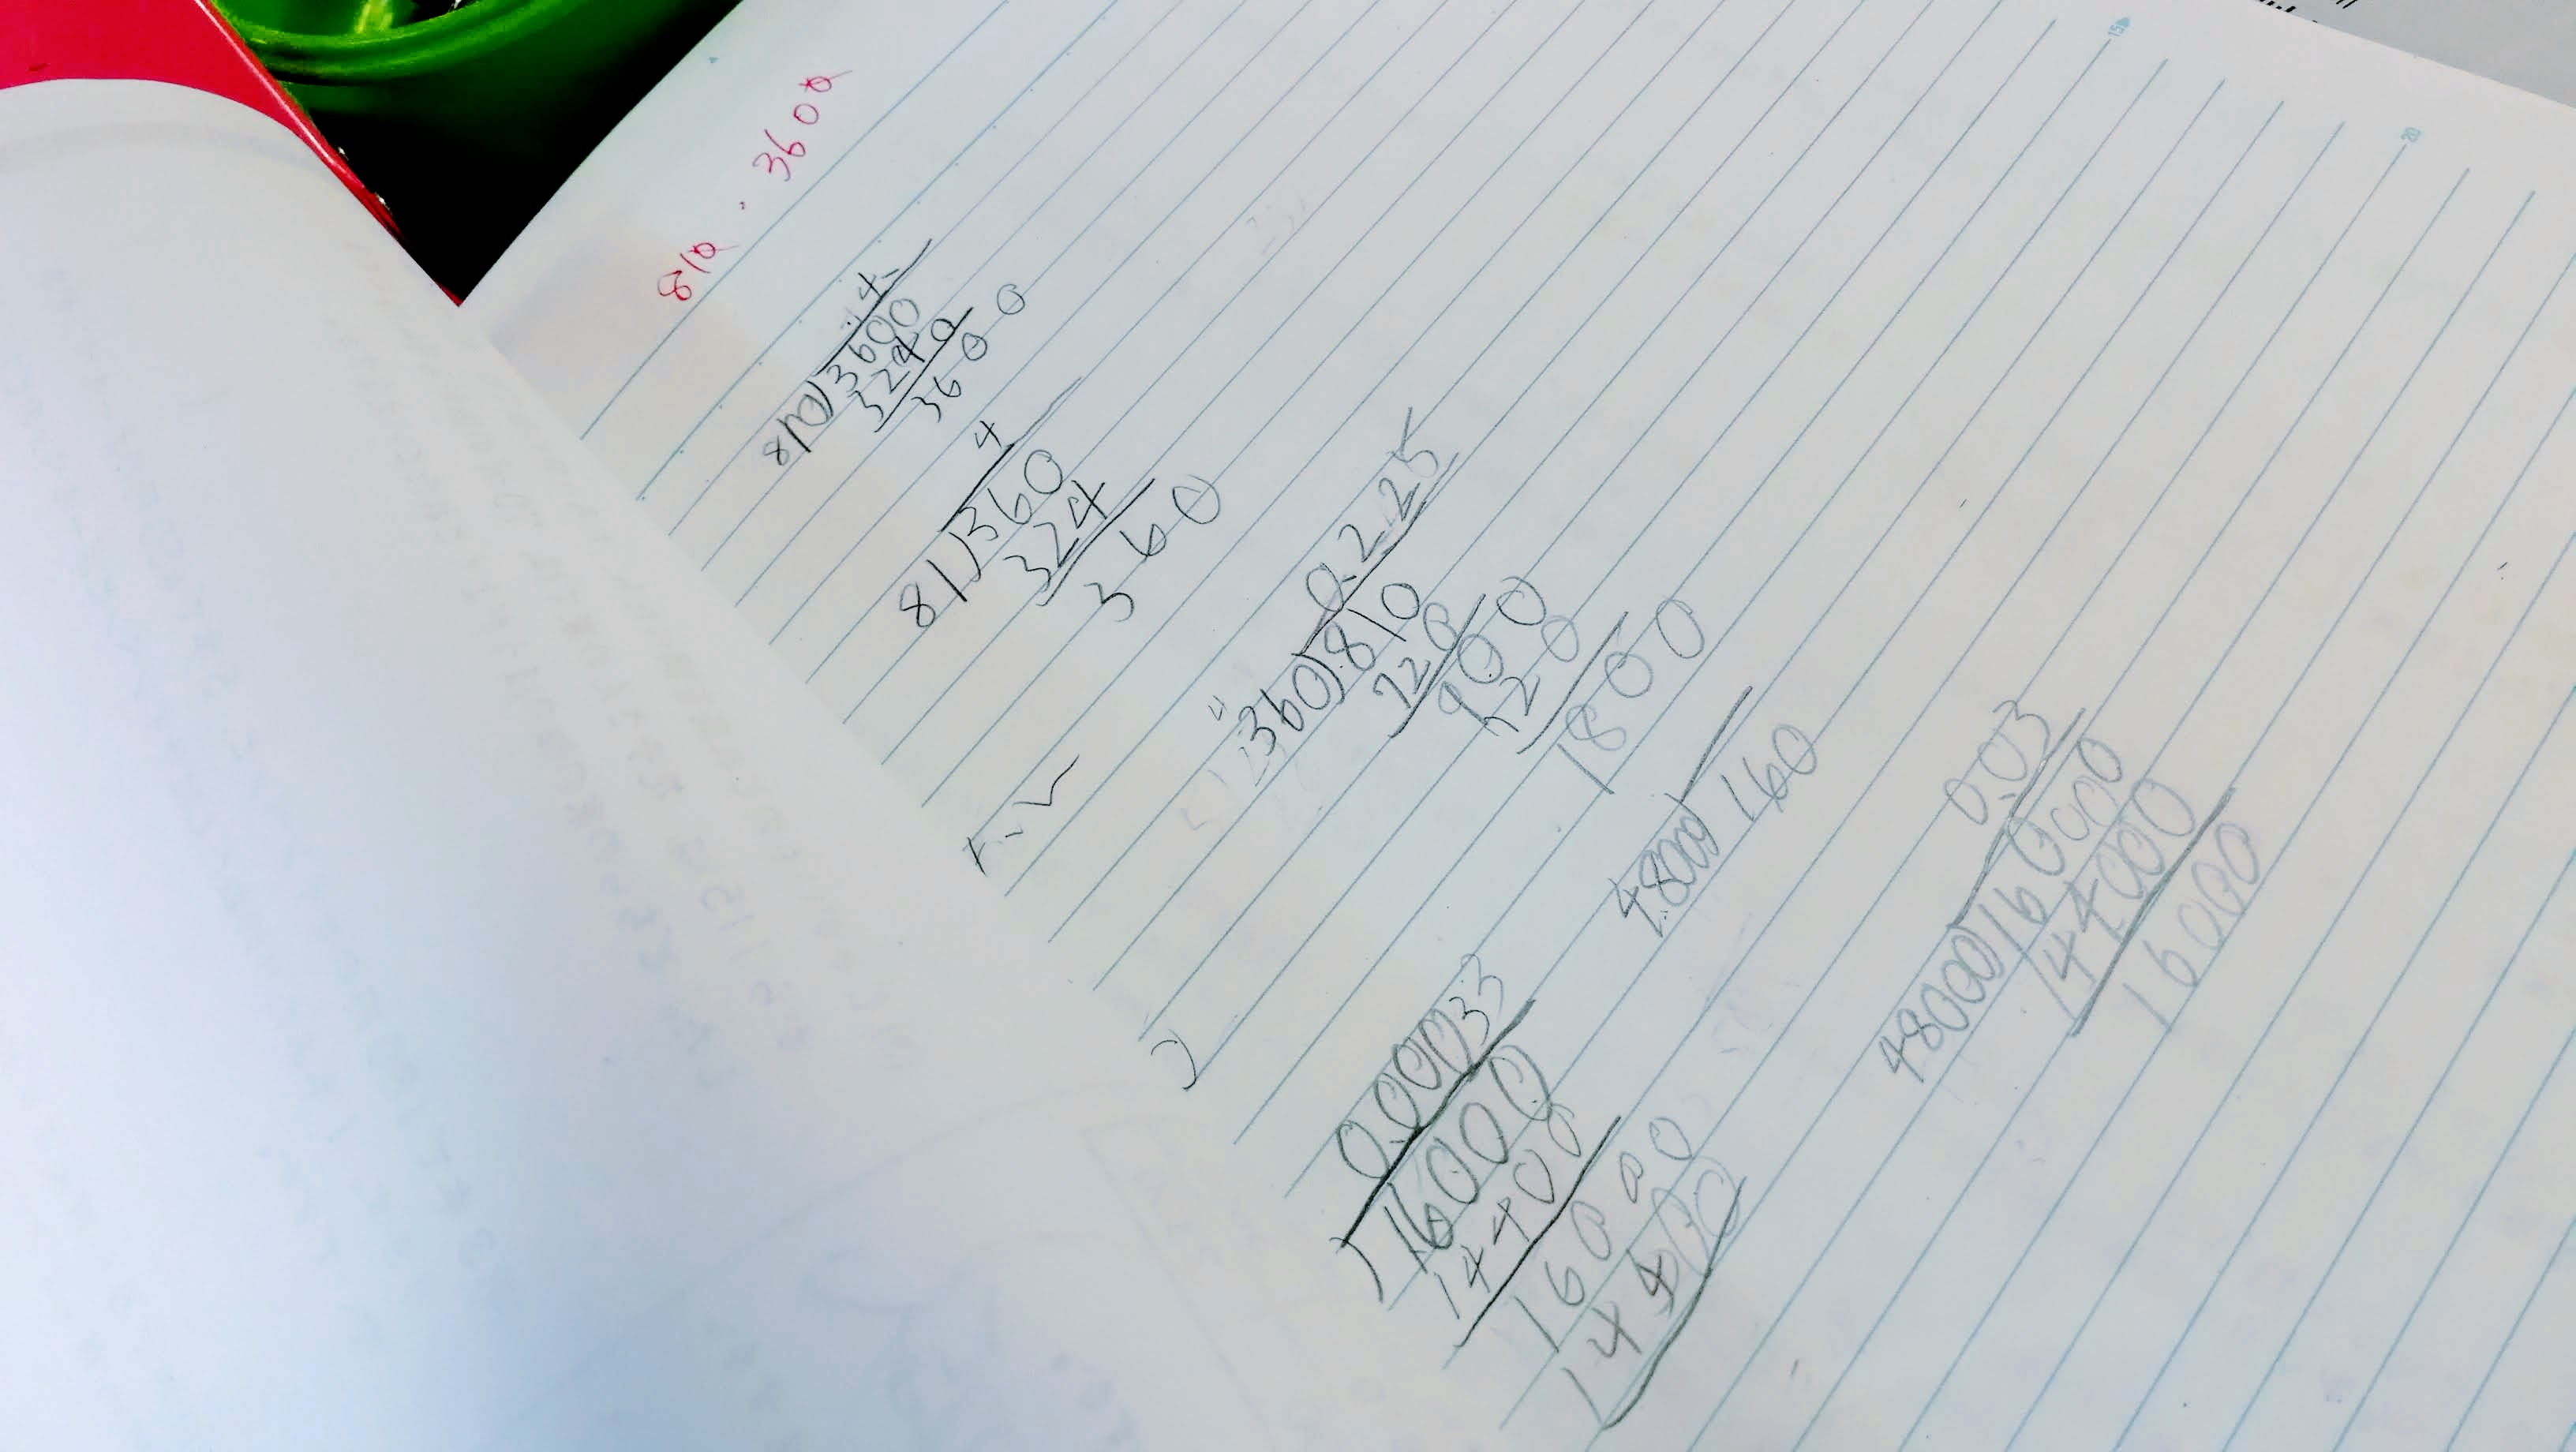 810 . 3600
4.
810)3600
3240
3600
0
4
81)360
324
360
0.225
360)810
720
900
720
1800
4800)160
0.03
48000)160000
144000
16000
0.0033
)16000
14400
16000
14400
15
20